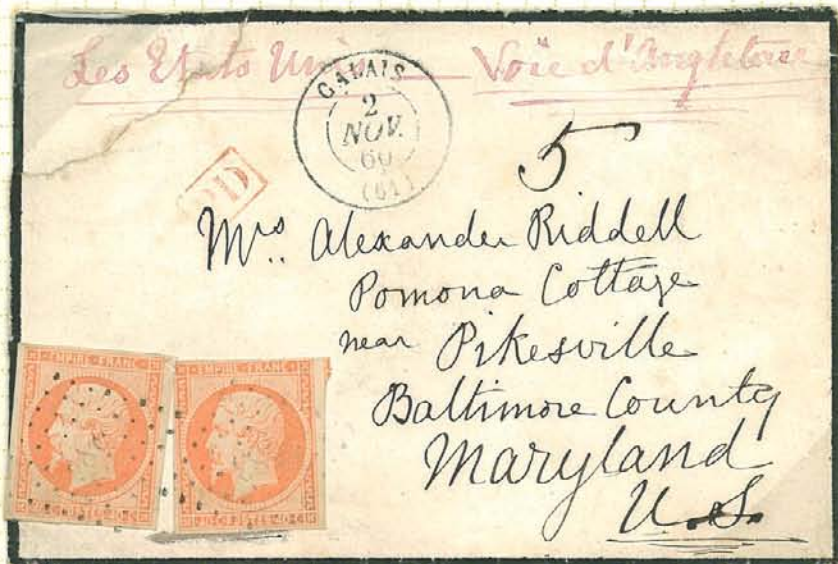 Les Etats Unis — Voie d'Angleterre
CALAIS
2
NOV.
60
(61)
PD
5
Mrs. Alexander Riddell
Pomona Cottage
near Pikesville
Baltimore County
Maryland
U.S.
EMPIRE FRANC
EMPIRE FRANC